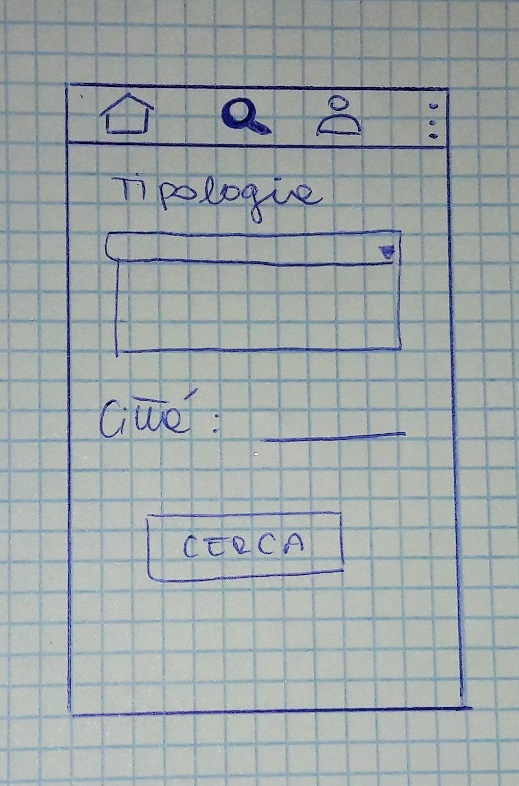 Tipologia
Città:
CERCA